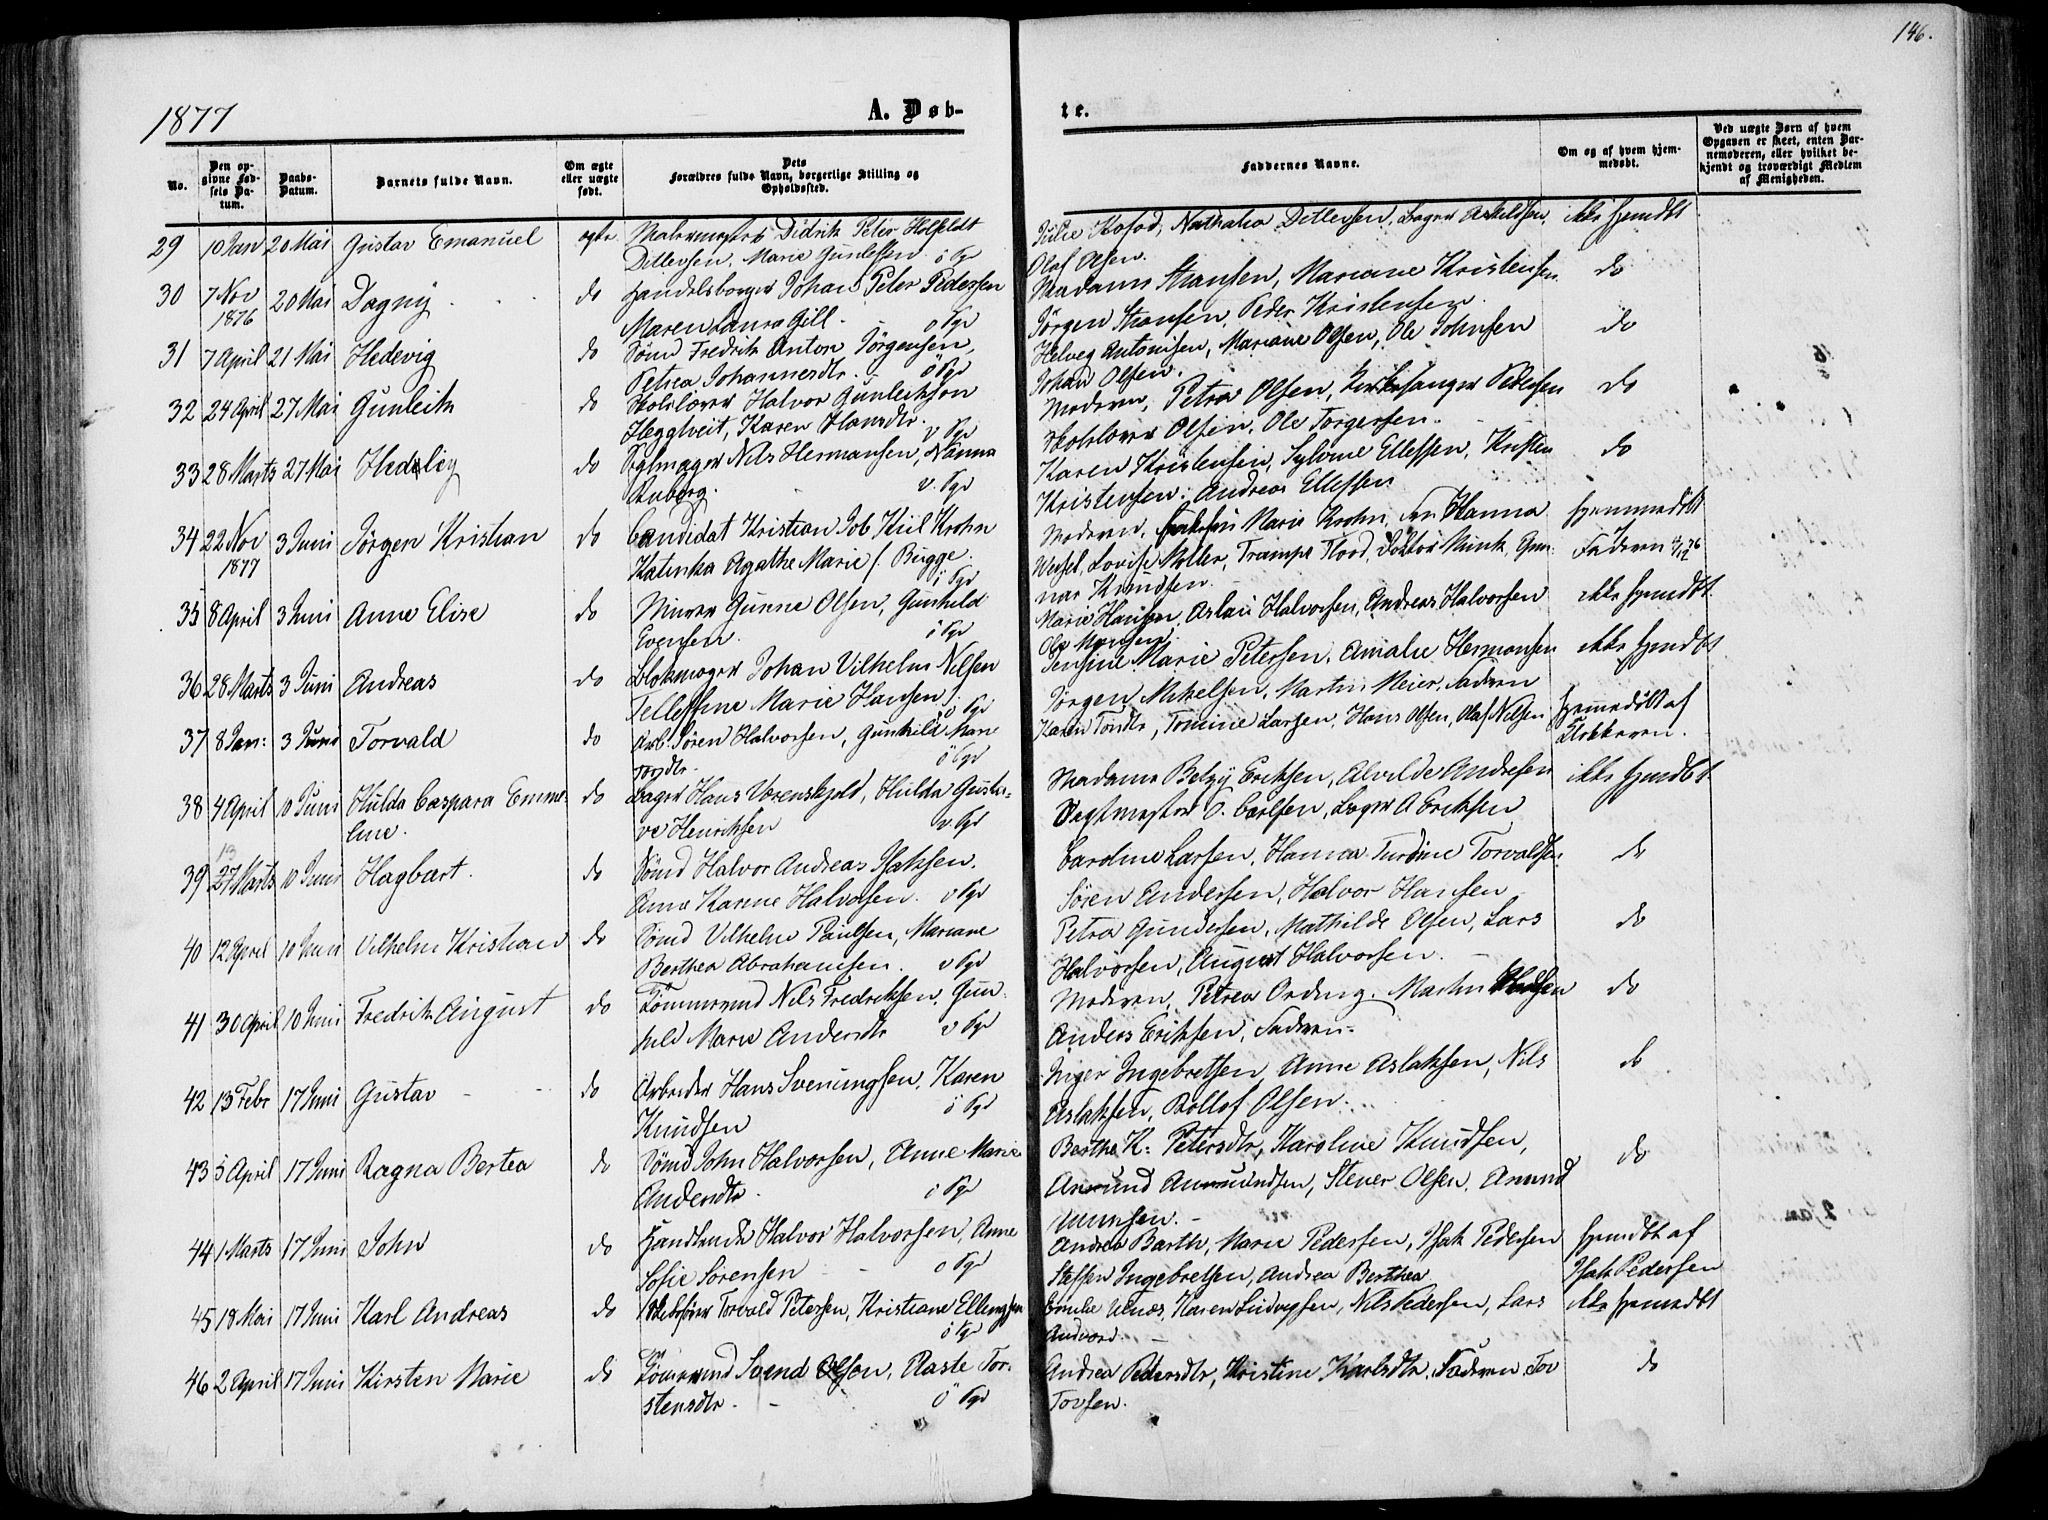 146.
1877
A. Døb-
te.
No.
Den op-
givne Fød-
sels Da-
tum.
Daabs-
Datum.
Barnets fulde Navn.
Om ægte
eller uægte
født.
Dets
Forældres fulde Navn, borgerlige Stilling og
Opholdssted.
Faddernes Navne.
Om og af hvem hjem-
medøbt.
Ved uægte Børn af hvem
Opgaven er skeet, enten Bar-
nemoderen, eller hvilket be-
kjendt og troværdigt Medlem
af Menigheden.
29 10 Jan 20 Mai Gustav Emanuel ægte. Malermester Didrik Peter Holfeldt
Ditlevsen, Marie Gunlefsen ö Pgr
Julie Kofod, Nathalia Ditlevsen, Bager Askildsen, ikke hjemdbt
Olaf Olsen.
30 7 Nov
1876 20 Mai Dagny do Handelsborger Johan Peter Pedersen
Maren Laura Gill. ö Pgr
Madam Stransen, Mariane Kristensen do
Jörgen Stransen, Peder Kristensen
31 7 April 21 Mai Hedevig do Sömd Fredrik Anton Jörgensen,
Petrea Johannesdtr. ö Pgr
Helveg Antonisen, Mariane Olsen, Ole Johnsen do
Johan Olsen.
32 24 April 27 Mai Gunleik do Skolelærer Halvor Gunleiksön
Heggtveit, Karen Hansdtr. v Pgr
Moderen, Petra Olsen, Kirkesanger Pedersen do
Skolelærer Olsen, Ole Torgersen.
33 28 Marts 27 Mai do Seglmager Nils Hermansen, Nanna
v. Pgr
Karen Kristensen, Sylvine Ellefsen, Kristen do
Kristensen, Andreas Ellefsen
34 22 Nov
1877 3 Juni Jörgen Kristian do Candidat Kristian Job Kiil Krohn
Katinka Agathe Marie f. Brigge.
ö Pgr
Moderen, Marie Krohn, Hanna hjemmedöbt
Wessel, Lovise Möller, Trampe Flood, Doktor Munk, Gun- Faderen
nar Knudsen.
35 8 April 3 Juni Anne Elise do Minerer Gunne Olsen, Gunhild
Evensen. ö Pgr
Marie Hansen, Aslau Halvorsen, Andreas Halvorsen ikke hjemdbt
36 28 Marts 3 Juni Andreas do Blokmager Johan Vilhelm Nilsen
Tellefine Marie Hansen ö Pgr
Jensine Marie Petersen, Amalie Hermansen ikke hjemdbt
Jörgen Mikelsen, Martin Meier, Faderen
37 8 Jan: 3 Juni Torvald do Arb. Sören Halvorsen, Gunhild Marie
ö Pgr
Karen Torsdtr, Tomine Larsen, Hans Olsen, Olaf Nilsen hjemmedöbt af
Klokkeren.
38 4 April 10 Juni Hulda Caspara Emme-
line. do Bager Hans Vorenskjold, Hulda Gusta-
ve Henriksen v. Pgr
Madam Betzy Eriksen, Alvilde Andresen ikke hjemdbt
Vagtmester O. Carlsen, Bager A Eriksen
39 13
27 Marts 10 Juni Hagbart. do Sömd Halvor Andreas Isaksen,
Anne Karine Halvorsen. v Pgr
Caroline Larsen, Hanna Turdine Torvaldsen do
Sören Andersen, Halvor Hansen
40 12 April 10 Juni Vilhelm Kristian do Sömd Vilhelm Paulsen, Mariane
Berthea Abrahamsen. v Pgr
Petra Gundersen, Mathilde Olsen, Lars do
Halvorsen, August Halvorsen.
41 30 April 10 Juni Fredrik August do Tömmermd Nils Fredriksen, Gun-
hild Marie Andersdtr v Pgr
Moderen, Petrea Ording, Martin do
Anders Eriksen, Faderen.
42 13 Febr 17 Juni Gustav do Arbeider Hans Sveningsen, Karen
Knudsen ö Pgr
Inger Ingebretsen, Anne Aslaksen, Nils do
Aslaksen, Rollof Olsen.
43 5 April 17 Juni Ragna Bertea do Sömd John Halvorsen, Anne Marie
Andersdtr. ö Pgr
Berthe K: Petersdtr, Karoline Knudsen, do
Amund Amundsen, Stener Olsen, Amund

44 1 Marts 17 Juni John do Handlende Halvor Halvorsen, Anne
Sofie Sörensen ö Pgr
Andrea Barth, Marie Pedersen, Isak Pedersen hjemdbt af
Steffen Ingebretsen, Andrea Berthea Isak Pedersen
45 18 Mai 17 Juni Karl Andreas do Torvald Petersen, Kristiane Ellingsen
ö Pgr
Emilie Ulnæs, Karen Ludvigsen, Nils Pedersen, Lars ikke hjemdbt
Andvord.
46 2 April 17 Juni Kirsten Marie do Tömmermd Svend Olsen, Aaste Tor-
stensdtr. ö Pgr
Andrea Pedersdtr, Kristine Karlsdtr, Faderen, Tov do
Tovsen.